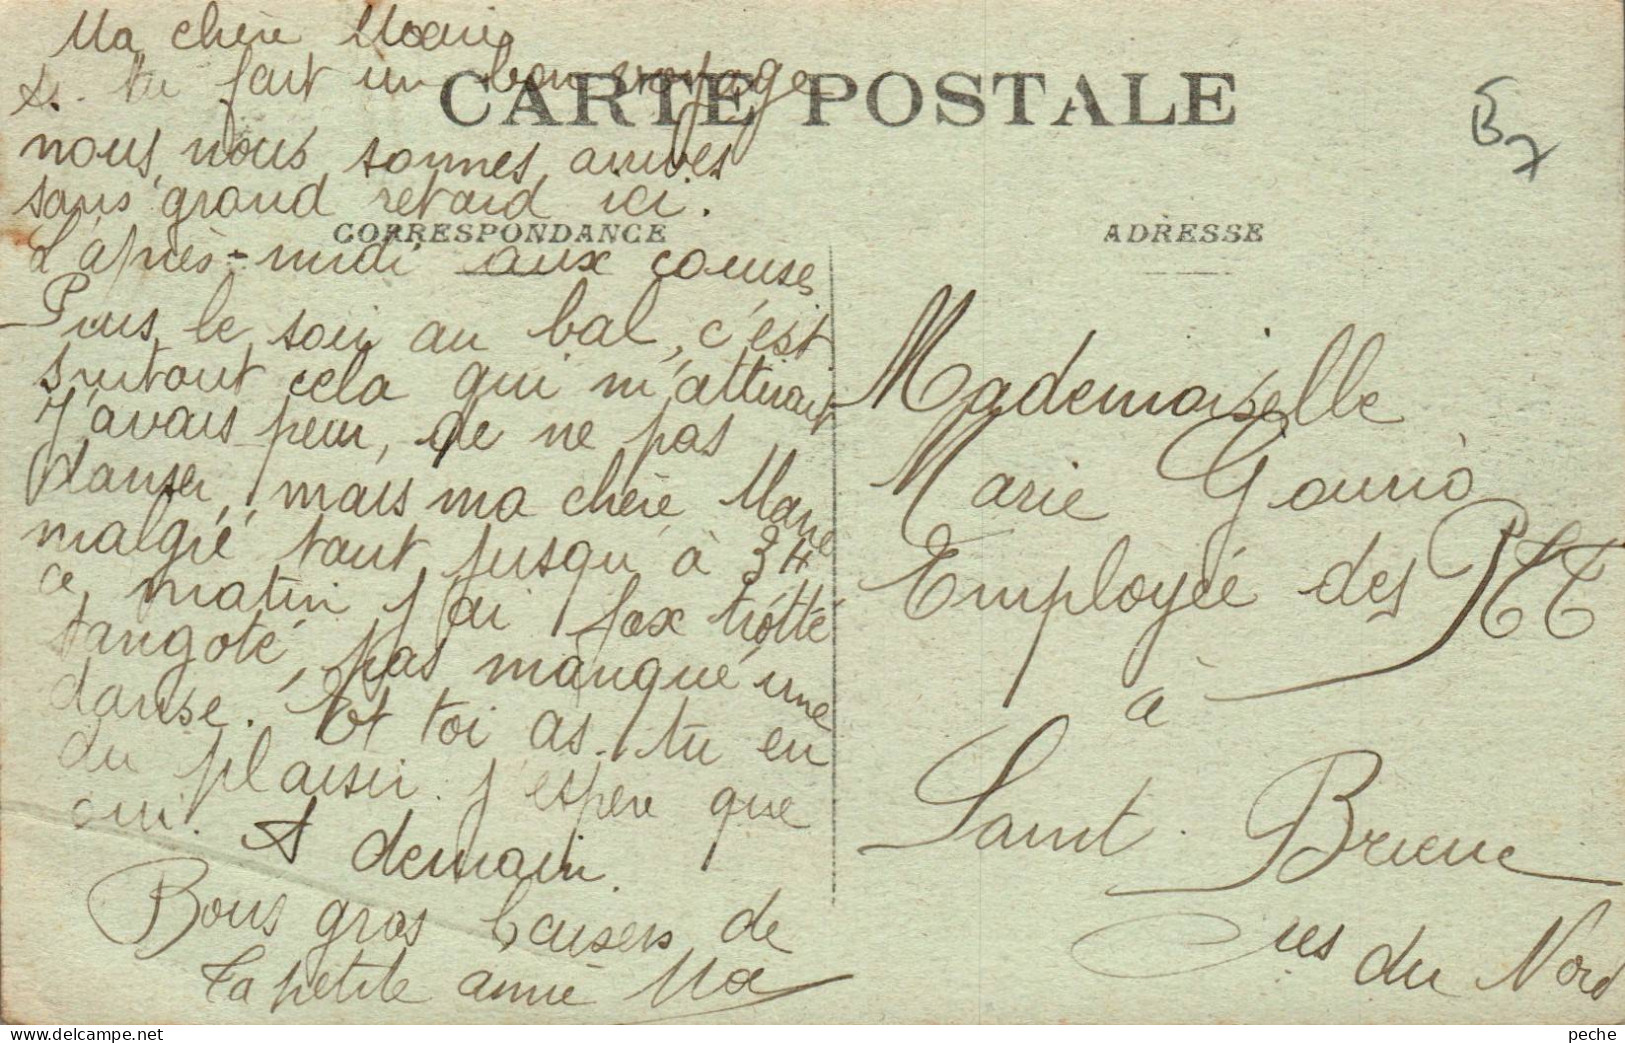 CARTE POSTALE
CORRESPONDANCE
Ma chère Marie
as-tu fait un bon voyage
nous, nous sommes arrivés
sans grand retard ici.
L'après-midi aux courses
Puis le soir au bal, c'est
surtout cela qui m'attirait
J'avais peur, de ne pas
danser, mais ma chère Marie
malgré tout jusqu'à 3H
ce matin j'ai fox trotté
tangoté, pas manqué une
danse. Et toi as-tu eu
du plaisir. j'espère que
oui. A demain.
Bons gros baisers de
ta petite amie Ma
ADRESSE
Mademoiselle
Marie Gourio
Employée des PTT
à
Saint Brieuc
Ctes du Nord
peche